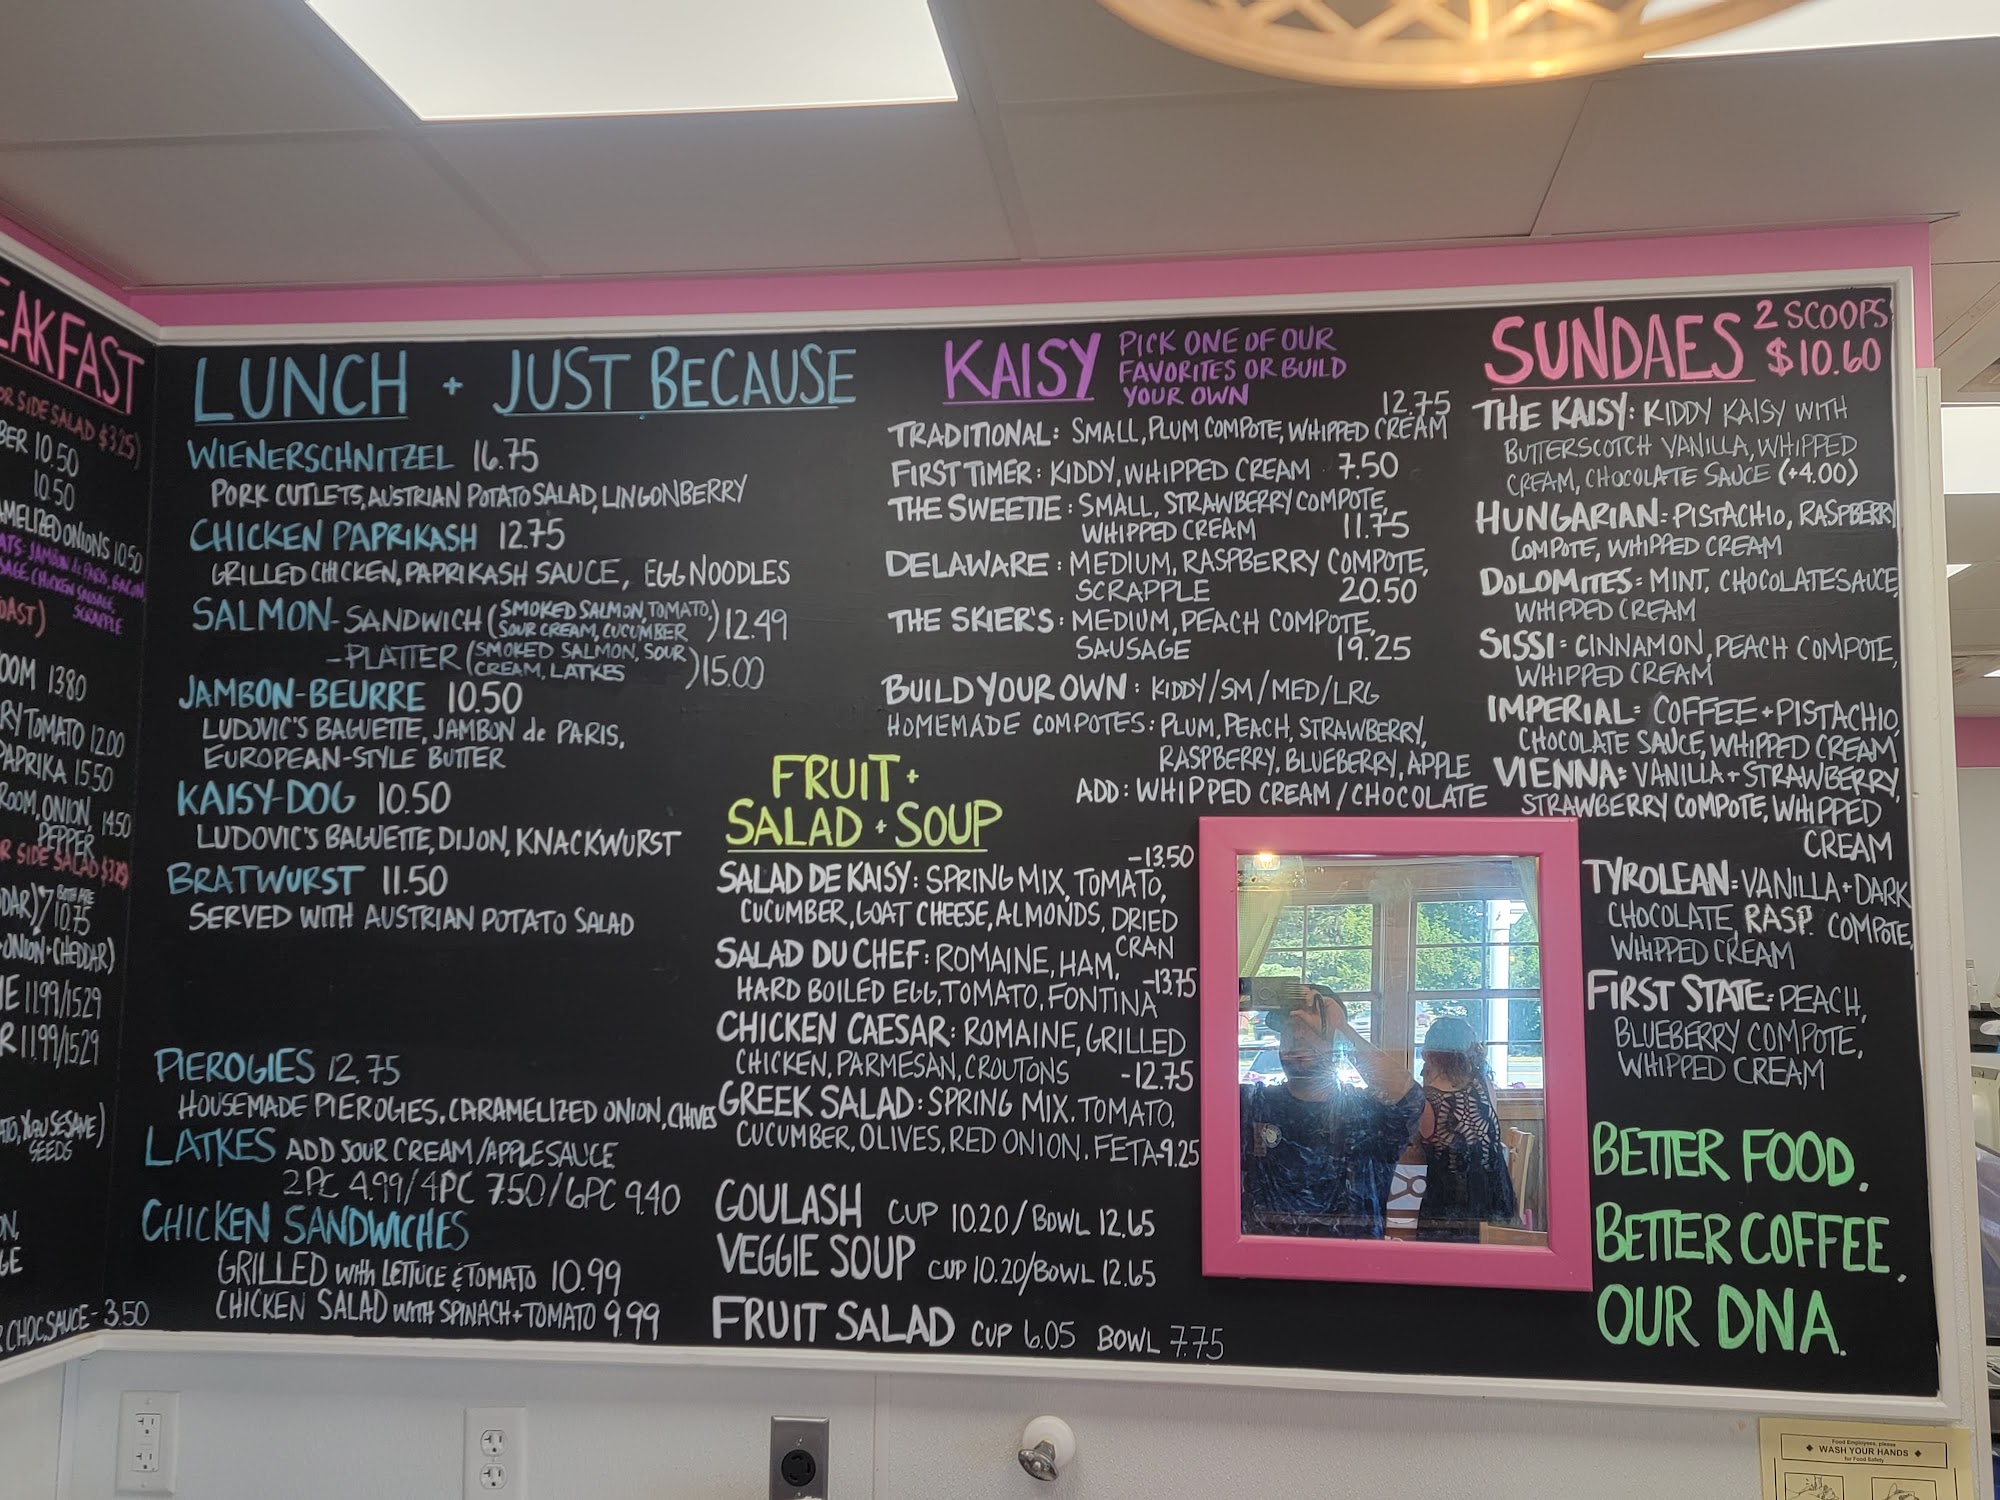 EAKFAST
OR SIDE SALAD $3.25)
BER 10.50
10.50
AMELIZED ONIONS 10.50
ATS: JAMBON de PARIS, BACON
SAGE, CHICKEN SAUSAGE,
SCRAPPLE
OAST)
OOM 13.80
RY TOMATO 12.00
PAPRIKA 15.50
ROOM, ONION, 14.50
PEPPER
R SIDE SALAD $3.25)
DAR) BOTH ARE
10.75
+ONION+CHEDDAR)
E 11.99/15.29
R 11.99/15.29
SESAME)
SEEDS
ON,
GE
CHOC. SAUCE - 3.50
LUNCH + JUST BECAUSE
WIENERSCHNITZEL 16.75
PORK CUTLETS, AUSTRIAN POTATO SALAD, LINGONBERRY
CHICKEN PAPRIKASH 12.75
GRILLED CHICKEN, PAPRIKASH SAUCE, EGG NOODLES
SALMON - SANDWICH (SMOKED SALMON, TOMATO, SOUR CREAM, CUCUMBER) 12.49
- PLATTER (SMOKED SALMON, SOUR CREAM, LATKES) 15.00
JAMBON-BEURRE 10.50
LUDOVIC'S BAGUETTE, JAMBON de PARIS,
EUROPEAN-STYLE BUTTER
KAISY-DOG 10.50
LUDOVIC'S BAGUETTE, DIJON, KNACKWURST
BRATWURST 11.50
SERVED WITH AUSTRIAN POTATO SALAD
PIEROGIES 12.75
HOUSEMADE PIEROGIES, CARAMELIZED ONION, CHIVES
LATKES ADD SOUR CREAM/APPLESAUCE
2PC 4.99/4PC 7.50/6PC 9.40
CHICKEN SANDWICHES
GRILLED WITH LETTUCE & TOMATO 10.99
CHICKEN SALAD WITH SPINACH + TOMATO 9.99
KAISY PICK ONE OF OUR
FAVORITES OR BUILD
YOUR OWN
12.75
TRADITIONAL: SMALL, PLUM COMPOTE, WHIPPED CREAM
FIRST TIMER: KIDDY, WHIPPED CREAM 7.50
THE SWEETIE: SMALL, STRAWBERRY COMPOTE,
WHIPPED CREAM 11.75
DELAWARE: MEDIUM, RASPBERRY COMPOTE,
SCRAPPLE 20.50
THE SKIER'S: MEDIUM, PEACH COMPOTE,
SAUSAGE 19.25
BUILD YOUR OWN: KIDDY/SM/MED/LRG
HOMEMADE COMPOTES: PLUM, PEACH, STRAWBERRY,
RASPBERRY, BLUEBERRY, APPLE
ADD: WHIPPED CREAM/CHOCOLATE
FRUIT +
SALAD + SOUP
-13.50
SALAD DE KAISY: SPRING MIX, TOMATO,
CUCUMBER, GOAT CHEESE, ALMONDS, DRIED
CRAN
SALAD DU CHEF: ROMAINE, HAM,
HARD BOILED EGG, TOMATO, FONTINA -13.75
CHICKEN CAESAR: ROMAINE, GRILLED
CHICKEN, PARMESAN, CROUTONS -12.75
GREEK SALAD: SPRING MIX, TOMATO,
CUCUMBER, OLIVES, RED ONION, FETA-9.25
GOULASH CUP 10.20/BOWL 12.65
VEGGIE SOUP CUP 10.20/BOWL 12.65
FRUIT SALAD CUP 6.05 BOWL 7.75
SUNDAES 2 SCOOPS
$10.60
THE KAISY: KIDDY KAISY WITH
BUTTERSCOTCH VANILLA, WHIPPED
CREAM, CHOCOLATE SAUCE (+4.00)
HUNGARIAN: PISTACHIO, RASPBERRY
COMPOTE, WHIPPED CREAM
DOLOMITES: MINT, CHOCOLATE SAUCE,
WHIPPED CREAM
SISSI: CINNAMON, PEACH COMPOTE,
WHIPPED CREAM
IMPERIAL: COFFEE + PISTACHIO,
CHOCOLATE SAUCE, WHIPPED CREAM
VIENNA: VANILLA + STRAWBERRY,
STRAWBERRY COMPOTE, WHIPPED
CREAM
TYROLEAN: VANILLA + DARK
CHOCOLATE, RASP. COMPOTE,
WHIPPED CREAM
FIRST STATE: PEACH,
BLUEBERRY COMPOTE,
WHIPPED CREAM
BETTER FOOD.
BETTER COFFEE.
OUR DNA.
Food Employees, please
WASH YOUR HANDS
for Food Safety